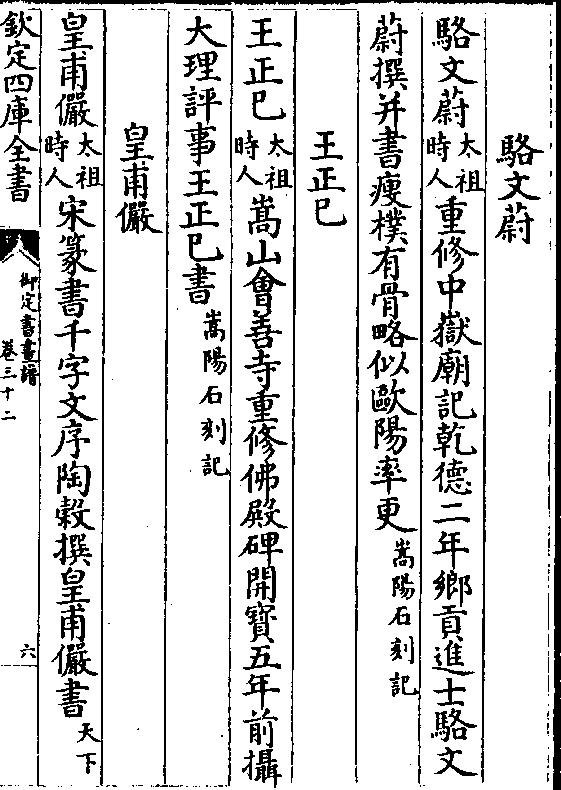 駱文蔚
駱文蔚太祖時人重修中嶽廟記乾德二年鄉貢進士駱文
蔚撰并書瘦樸有骨略似歐陽率更嵩陽石刻記
王正已
王正已太祖時人嵩山會善寺重修佛殿碑開寶五年前攝
大理評事王正已書嵩陽石刻記
皇甫儼
皇甫儼太祖時人宋篆書千字文序陶榖撰皇甫儼書天下
欽定四庫全書
御定書畫譜
卷三十二
六